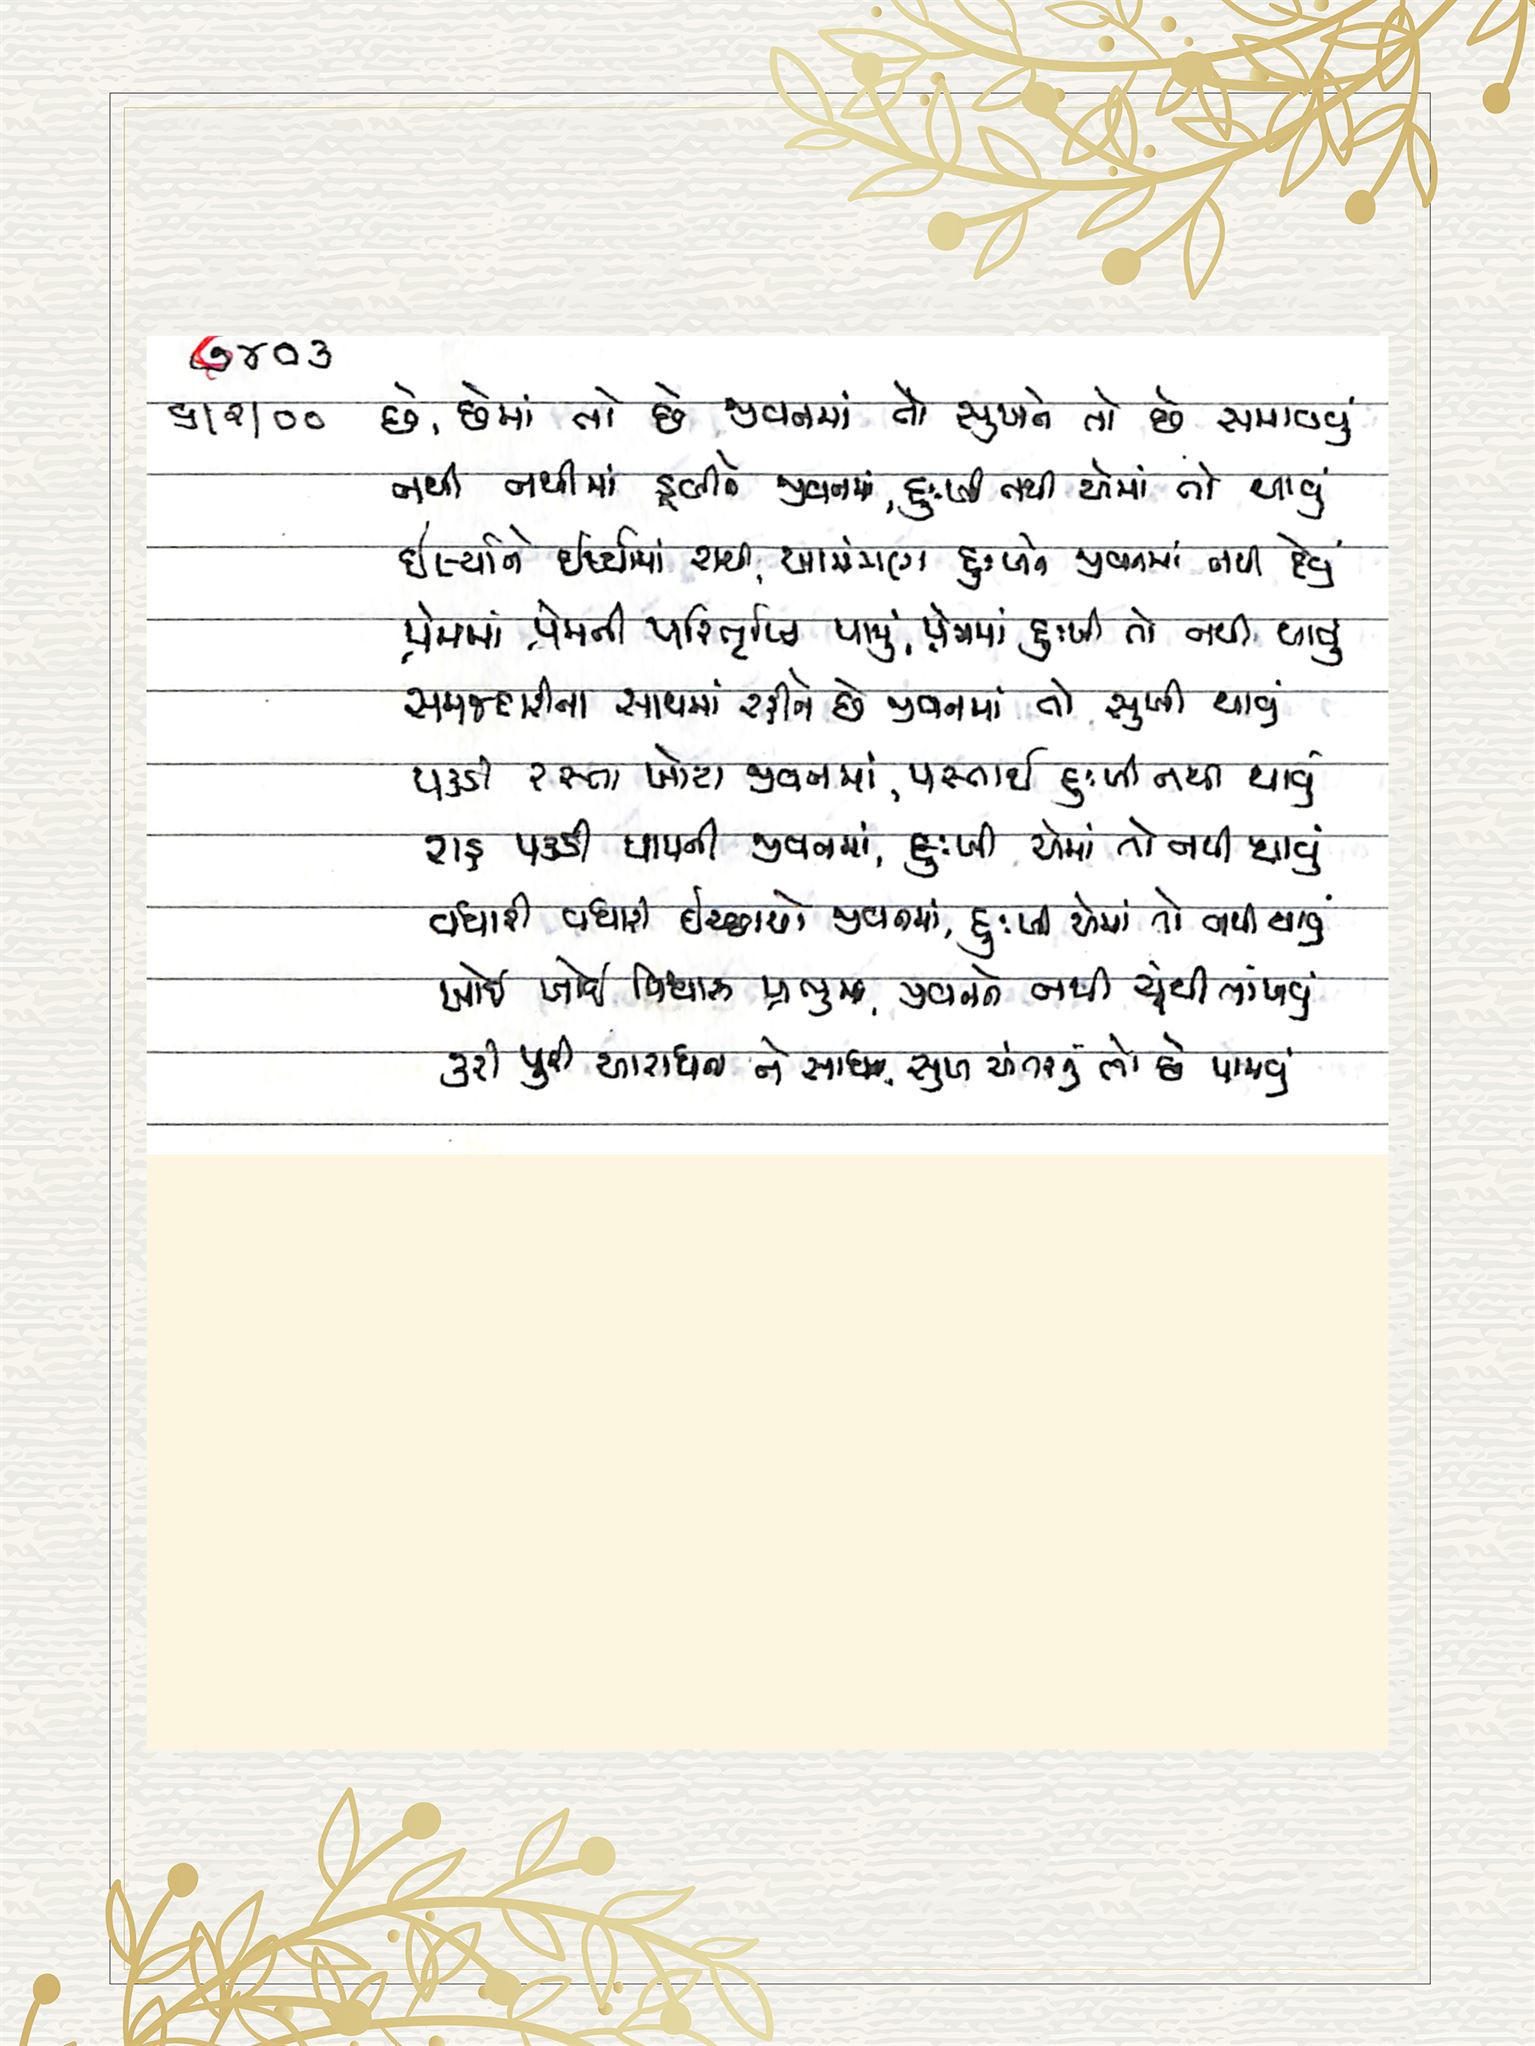 ૭૪૦૩
૫/૨/૦૦ છે, છેમાં તો છે જીવનમાં તો સુખને તો છે સમાવવું
નથી નથીમાં ડૂબીને જીવનમાં, દુઃખી નથી એમાં તો થાવું
ઈર્ષ્યાને ઈર્ષ્યામાં રાચી, આમંત્રણ દુઃખને જીવનમાં નથી દેવું
પ્રેમમાં પ્રેમની પરિતૃપ્તિ પામું, પ્રેમમાં દુઃખી તો નથી થાવું
સમજદારીના સાથમાં રહીને છે જીવનમાં તો સુખી થાવું
પકડી રસ્તા ખોટા જીવનમાં, પસ્તાઈ દુઃખી નથી થાવું
રાહ પકડી પાપની જીવનમાં, દુઃખી એમાં તો નથી થાવું
વધારી વધારી ઈચ્છાઓ જીવનમાં, દુઃખી એમાં તો નથી થાવું
ખોઈ ખોઈ વિશ્વાસ પ્રભુમાં, જીવનને નથી એથી લાંઘવું
કરી પુરી આરાધના ને સાધના, સુખ અંતરનું તો છે પામવું